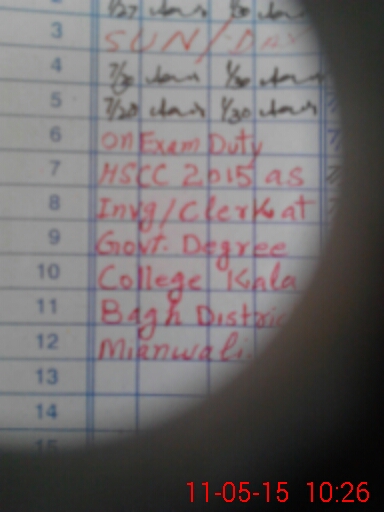 3 SUN/DAY
4 7/30 1/30
5 7/28 1/30
6 on Exam Duty
7 HSCC 2015 as
8 Invg/Clerk at
9 Govt. Degree
10 College Kala
11 Bagh District
12 Mianwali.
13
14
15
11-05-15 10:26